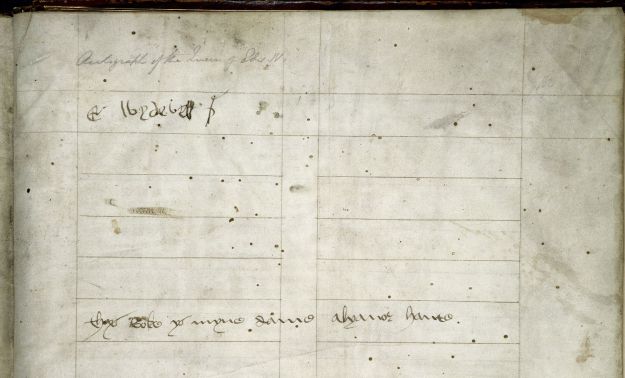 Autograph of the Queen of Edw. IV.
E Wydevyll
thys boke ys myne dame alyanor haute